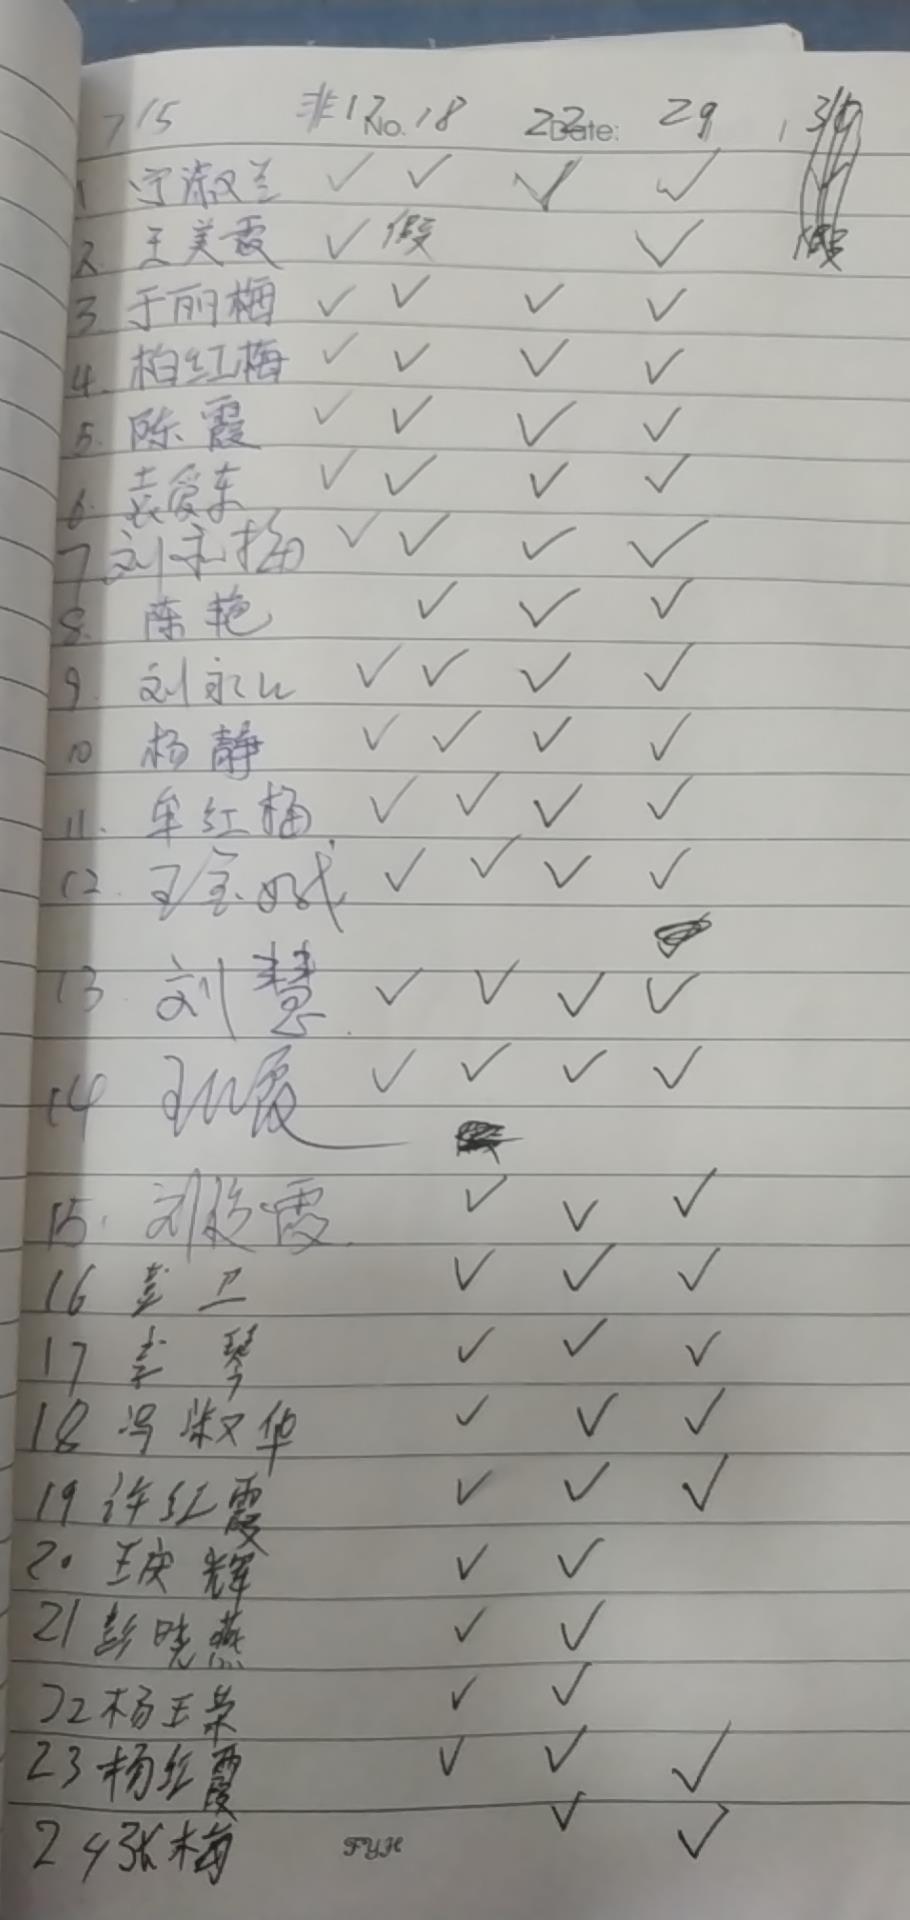 7/5 非12 No. 18 22 Date: 29 1 30
1 宁淑兰 ✓ ✓ ✓ ✓
2. 王美霞 ✓ 假 ✓ 假
3. 于丽梅 ✓ ✓ ✓ ✓
4. 柏红梅 ✓ ✓ ✓ ✓
5. 陈霞 ✓ ✓ ✓ ✓
6. 袁爱东 ✓ ✓ ✓ ✓
7 刘永梅 ✓ ✓ ✓ ✓
8. 陈艳 ✓ ✓ ✓
9. 刘永 ✓ ✓ ✓ ✓
10 杨静 ✓ ✓ ✓ ✓
11. 牟红梅 ✓ ✓ ✓ ✓
12. 王 ✓ ✓ ✓ ✓
13 刘慧 ✓ ✓ ✓ ✓
14 王 霞 ✓ ✓ ✓ ✓
15. 刘 霞 ✓ ✓ ✓
16 彭卫 ✓ ✓ ✓
17 李琴 ✓ ✓ ✓
18 冯淑华 ✓ ✓ ✓
19 许红霞 ✓ ✓ ✓
20 王庆辉 ✓ ✓
21 彭晓燕 ✓ ✓
22 杨玉荣 ✓ ✓
23 杨红霞 ✓ ✓ ✓
24 张梅 ✓ ✓
FYH